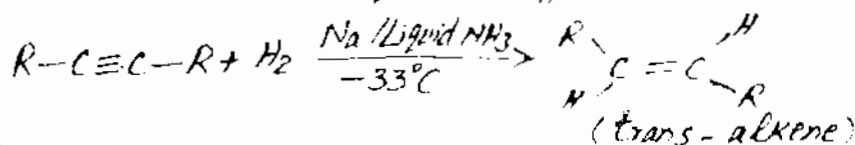 R-C≡C-R + H₂ Na/Liquid NH₃ -33°C → R H C=C H R
(trans-alkene)